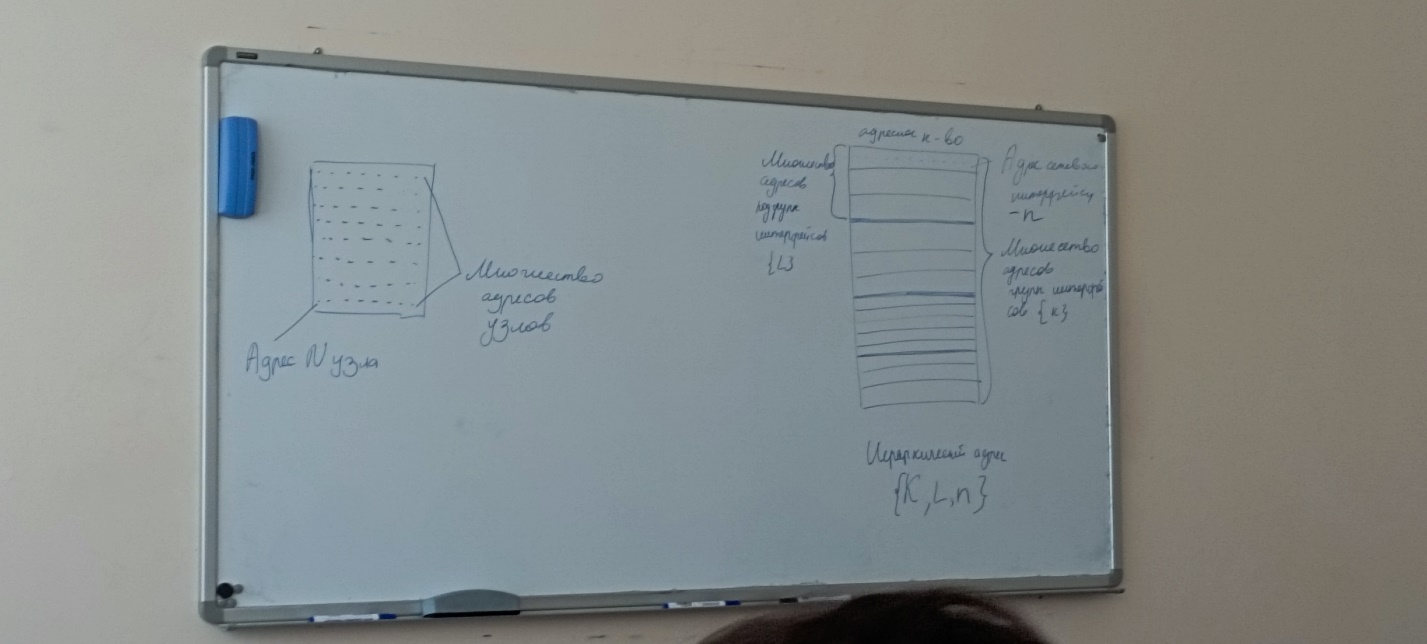 Множество
адресов
узлов
Адрес N узла
адресное п-во
Множество
адресов
подгрупп
интерфейсов
{L}
Адрес сетевого
интерфейса
-n
Множество
адресов
групп интерфей
сов {к}
Иерархический адрес
{K,L,n}